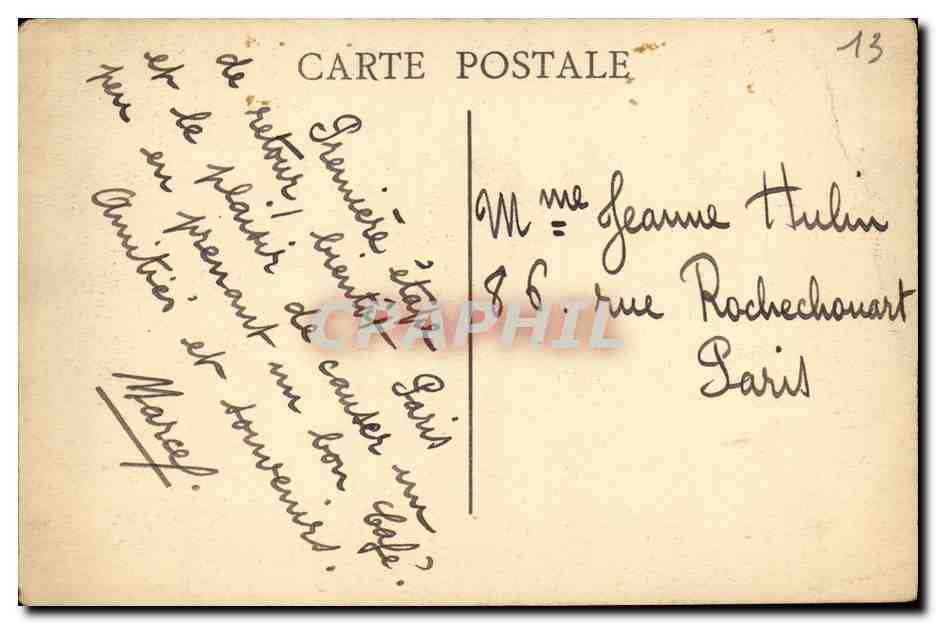 CARTE POSTALE
13
Première étape Paris
de retour, bientôt
et le plaisir de causer un
peu en prenant un bon Café.
Amitiés et souvenirs.
Marcel.
Mme Jeanne Hulin
86. rue Rochechouart
Paris
CRAPHIL